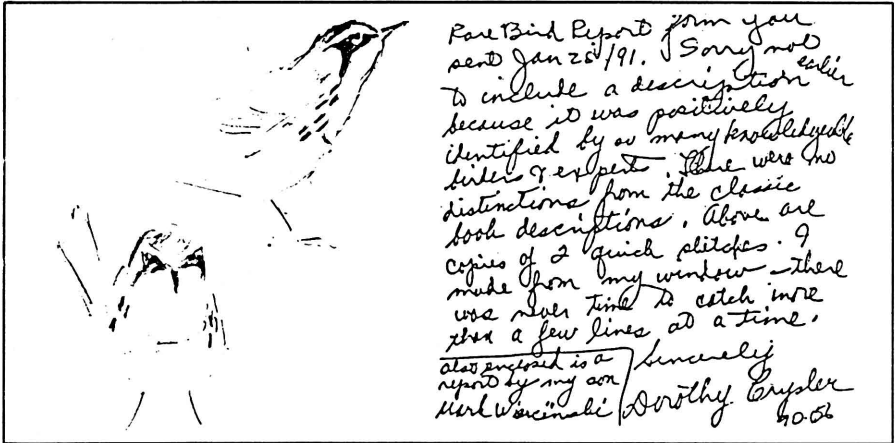 Rare Bird Report form you
sent Jan 25/91. Sorry not
earlier
to include a description
because it was positively
identified by so many knowledgeable
birders & experts. There were no
distinctions from the classic
book descriptions. Above are
copies of 2 quick sketches I
made from my window – there
was never time to catch more
than a few lines at a time.
also enclosed is a
report by my son
Mark
Sincerely
Dorothy Crysler
90.056